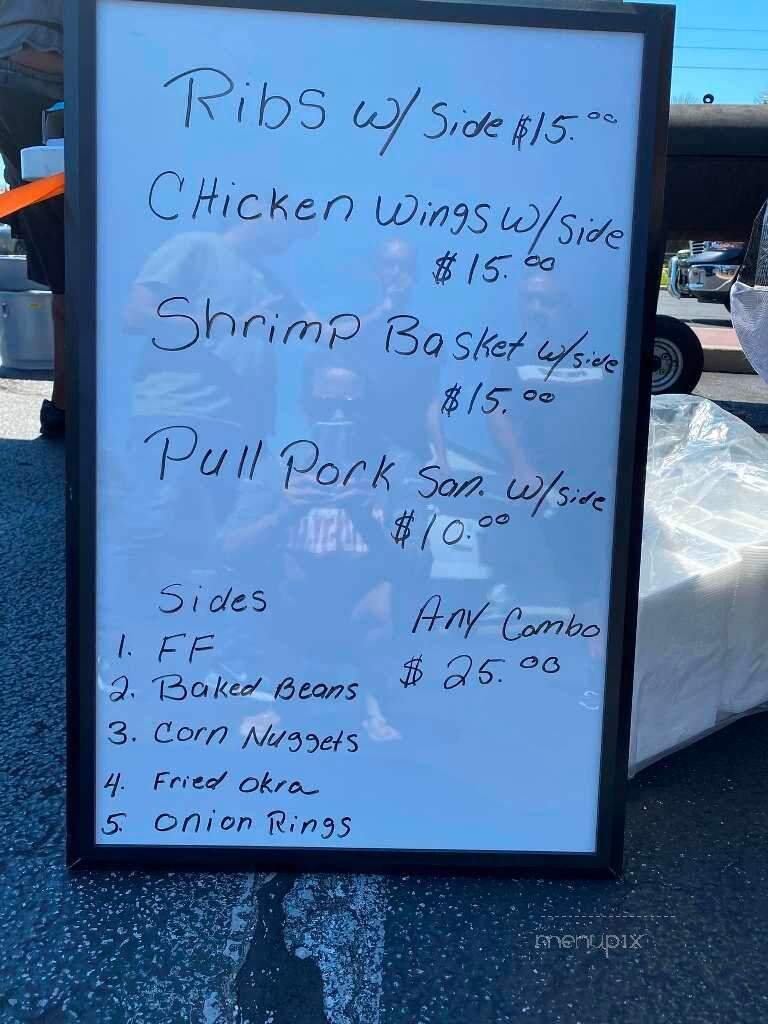 Ribs w/ Side $15.00
CHicken Wings w/ side
$15.00
Shrimp Basket w/side
$15.00
Pull Pork San. w/side
$10.00
Sides
Any Combo
$25.00
1. FF
2. Baked Beans
3. Corn Nuggets
4. Fried Okra
5. Onion Rings
menupix